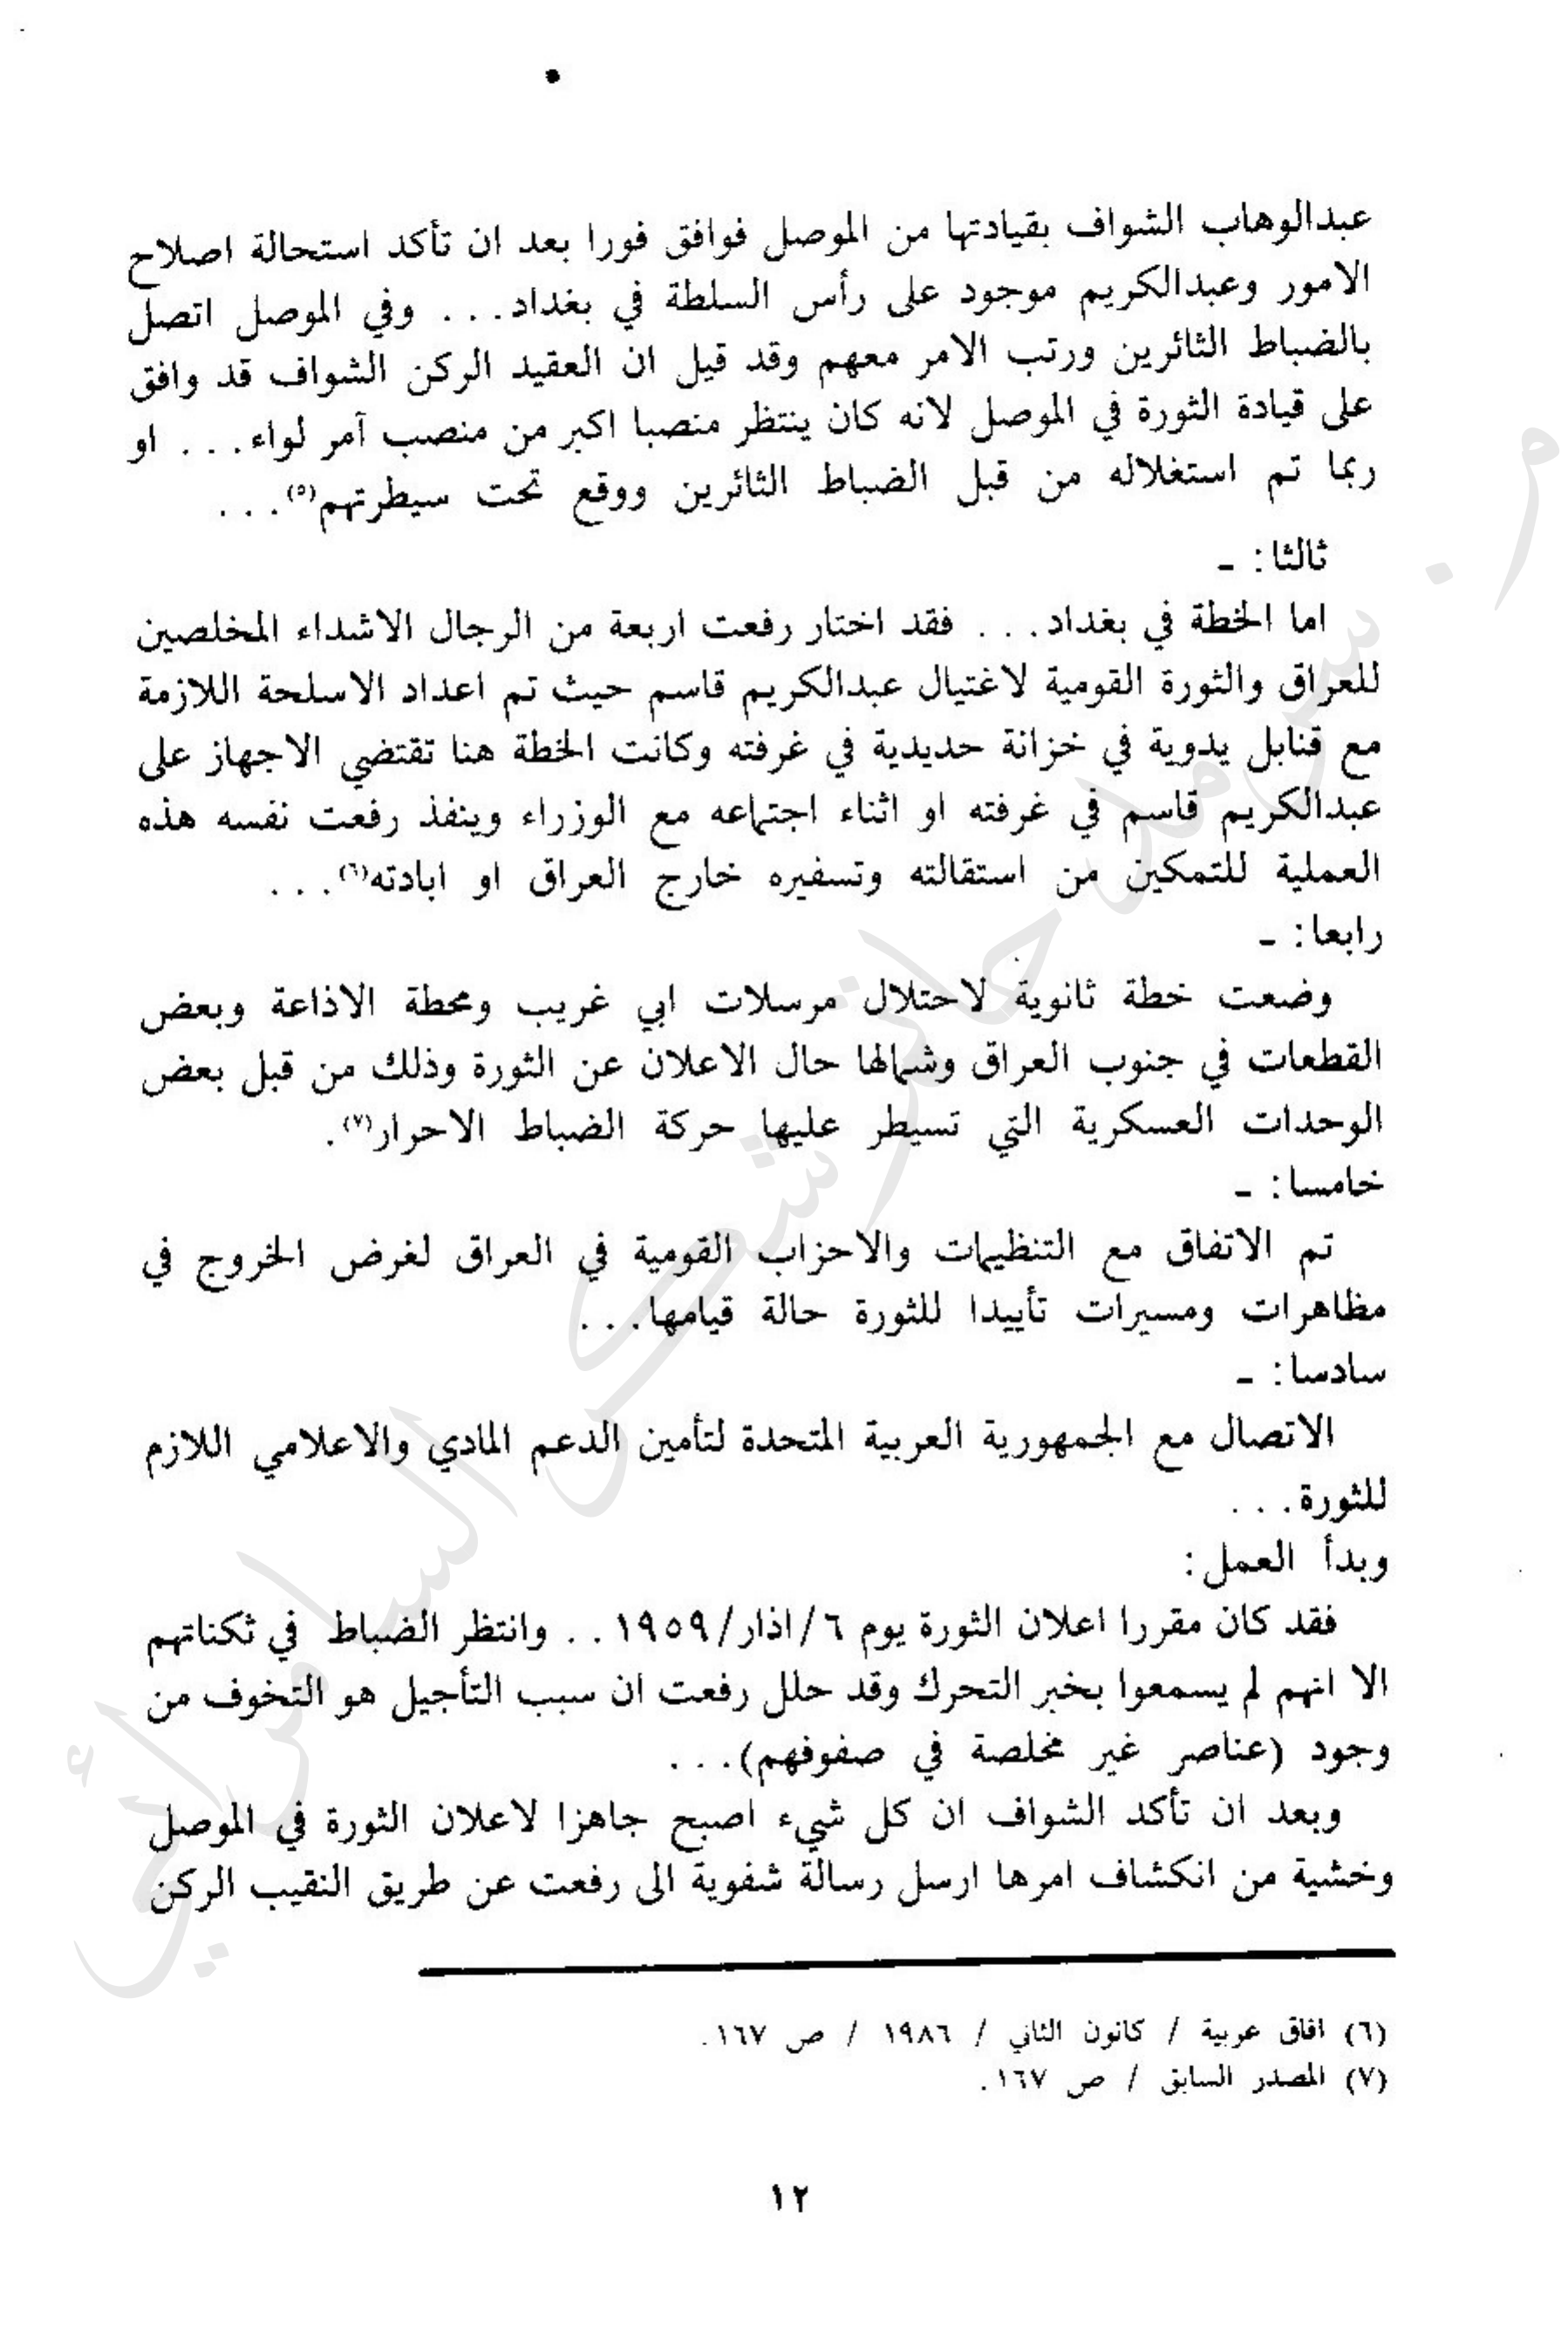 عبدالوهاب الشواف بقيادتها من الموصل فوافق فورا بعد ان تأكد استحالة اصلاح
الامور وعبدالكريم موجود على رأس السلطة في بغداد... وفي الموصل اتصل
بالضباط الثائرين ورتب الامر معهم وقد قيل ان العقيد الركن الشواف قد وافق
على قيادة الثورة في الموصل لانه كان ينتظر منصبا اكبر من منصب آمر لواء... او
ربما تم استغلاله من قبل الضباط الثائرين ووقع تحت سيطرتهم(٥)...
ثالثا: -
اما الخطة في بغداد... فقد اختار رفعت اربعة من الرجال الاشداء المخلصين
للعراق والثورة القومية لاغتيال عبدالكريم قاسم حيث تم اعداد الاسلحة اللازمة
مع قنابل يدوية في خزانة حديدية في غرفته وكانت الخطة هنا تقتضي الاجهاز على
عبدالكريم قاسم في غرفته او اثناء اجتماعه مع الوزراء وينفذ رفعت نفسه هذه
العملية للتمكين من استقالته وتسفيره خارج العراق او ابادته(٦)...
رابعا: -
وضعت خطة ثانوية لاحتلال مرسلات ابي غريب ومحطة الاذاعة وبعض
القطعات في جنوب العراق وشمالها حال الاعلان عن الثورة وذلك من قبل بعض
الوحدات العسكرية التي تسيطر عليها حركة الضباط الاحرار(٧).
خامسا: -
تم الاتفاق مع التنظيمات والاحزاب القومية في العراق لغرض الخروج في
مظاهرات ومسيرات تأييدا للثورة حالة قيامها...
سادسا: -
الاتصال مع الجمهورية العربية المتحدة لتأمين الدعم المادي والاعلامي اللازم
للثورة...
وبدأ العمل:
فقد كان مقررا اعلان الثورة يوم ٦/اذار/١٩٥٩.. وانتظر الضباط في ثكناتهم
الا انهم لم يسمعوا بخبر التحرك وقد حلل رفعت ان سبب التأجيل هو التخوف من
وجود (عناصر غير مخلصة في صفوفهم)...
وبعد ان تأكد الشواف ان كل شيء اصبح جاهزا لاعلان الثورة في الموصل
وخشية من انكشاف امرها ارسل رسالة شفوية الى رفعت عن طريق النقيب الركن
(٦) افاق عربية / كانون الثاني / ١٩٨٦ / ص ١٦٧.
(٧) المصدر السابق / ص ١٦٧.
١٢
م. سرمد حاتم شكر السامرائي